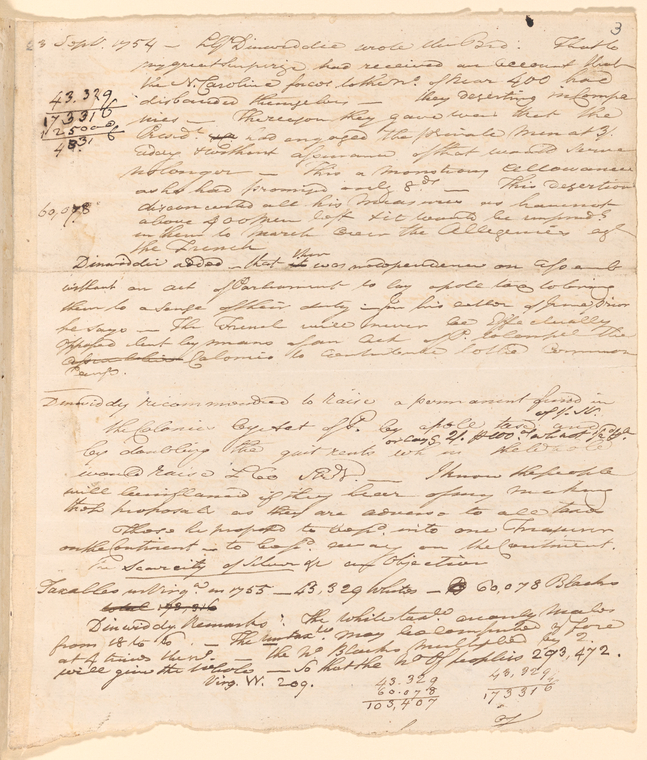 3
23 Sept. 1754 — Lt. G. Dinwiddie wrote the Bd. That to
my great surprize had received an account that
the N. Carolina forces to the no. of near 400 had
disbanded themselves — they deserting in Compa
nies — The reason they gave was that the
Presidt. had engaged the private Men at 3/
a day & without assurance of that would serve
no longer — This a monstrous allowance
as he had promised only 8ds — This desertion
disconcerted all his Measures as have not
above 400 men left & it would be imprudt.
in them to march over the Allegenies agt
the French
43.329
173316
125008
4 316
60,078
Dinwiddie added — that there was no dependence on assemb
without an act of Parliament to lay a pole tax to bring
them to a sense of their duty — In his letter of June prior
he says — The French will never be Effectually
opposed but by means of an Act of P. to compel the
Colonies to contribute to the Common
Cause.
Dinwiddy recommended to raise a permanent fund in
the Colonies by Act of P. by a pole tax and
by doubling the quit rents wh in the whole
would raise — I know the people
will be inflamed if they hear of my making
that proposal as they are adverse to all taxes
These he proposed to Depo. into one Treasury
on the Continent — to be away on the Continent.
The Scarcity of Silver &c an Objection
Taxables in Virga. in 1755 — 43,329 Whites — 60,078 Blacks
total
Dinwiddy Remarks: The white taxs. are only males
from 18 to 6. The may be computed therefore
at 4 times the no. the No Blacks multiplied by 2.
will give the whole — So that the No of people is 293,472.
Virg. W. 209.
43.329
60.078
103,407
43,329
173316